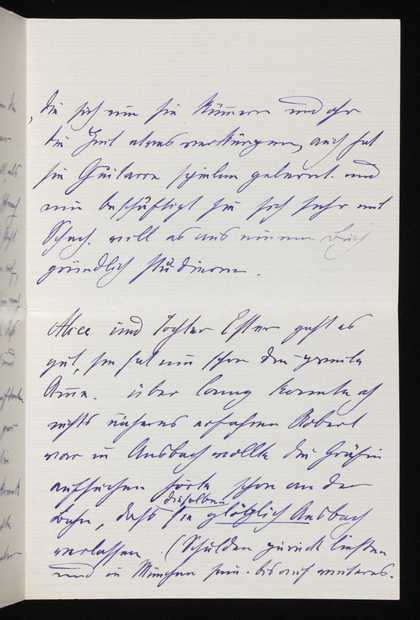 die sich um sie kümmern und ihr
die Zeit etwas verkürzen, auch hat
sie Guitarre spielen gelernt. und
nun beschäftigt sie sich sehr mit
Schach. will es aus einem Buch
gründlich studieren.
Alice und Tochter Ester geht es
gut, sie hat nun schon die zweite
Amme. über Lanny konnte ich
nichts näheres erfahren Robert
war in Ansbach wollte die Gräfin
aufsuchen hörte schon an der
Bahn, daß sie plötzlich Ansbach
dieselben
verlassen (Schulden zurück ließen
und in München sein. bis auf weiteres.